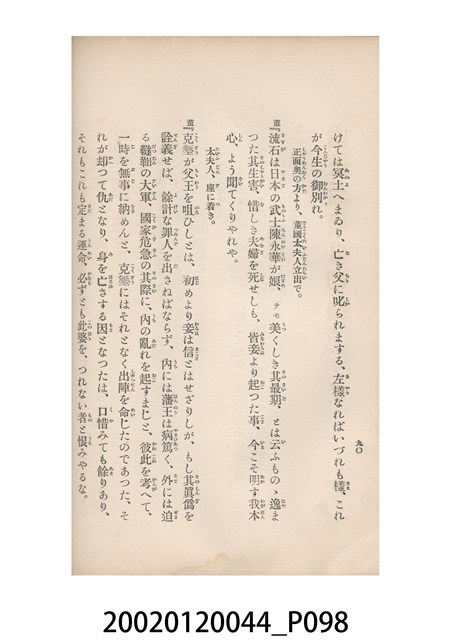 九〇
けては冥土へまゐり、亡き父に叱られまする、左樣なればいづれも樣、これ
が今生の御別れ。
正面奥の方より、董國太夫人立出で。
董『流石は日本の武士陳永華が娘、テモ美くしき其最期、とは云ふものゝ逸ま
つた其生害、惜しき夫婦を死せしも、皆妾より起つた事、今こそ明す我本
心、よう聞てくりやれや。
太夫人、座に着き。
董『克𡒉が父王を咀ひしとは、初めより妾は信とはせざりしが、もし其眞僞を
詮義せば、餘計な罪人を出さねばならず、內には藩王は病篤く、外には迫
る韃靼の大軍、國家危急の其際に、內の亂れを起すまじと、彼此を考へて、
一時を無事に納めんと、克𡒉にはそれとなく出陣を命じたのであつた、そ
れが却つて仇となり、身を亡さする因となつたは、口惜みても餘りあり、
それもこれも定まる運命、必ずとも此婆を、つれない者と恨みやるな。
20020120044_P098